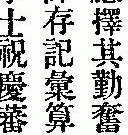 應擇其勤奮
存記彙算
士祝慶蕃